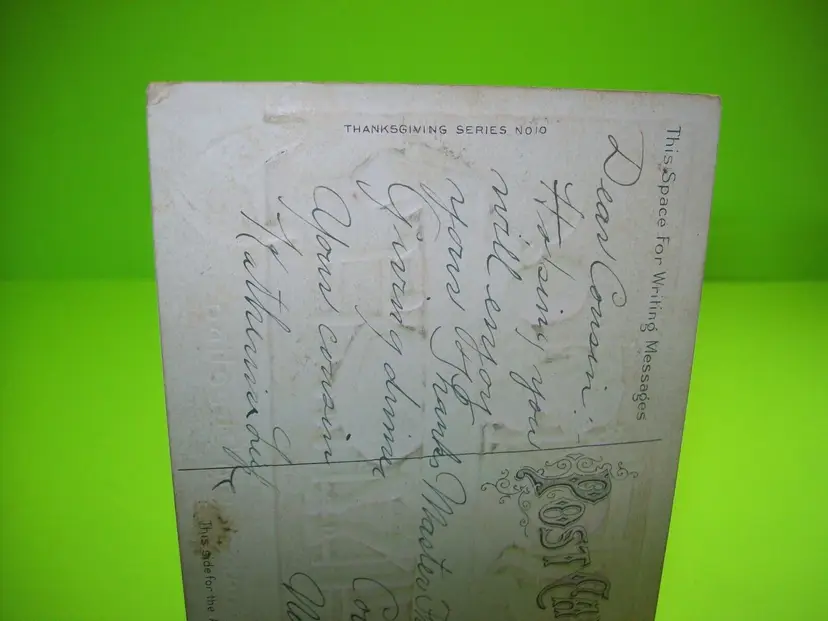 THANKSGIVING SERIES NO10
This Space For Writing Messages
Dear Cousin:-
Hoping you
will enjoy
your Thanks
Giving dinner
Your cousin
Kathleen
POST CA
Master
Co
This side for the